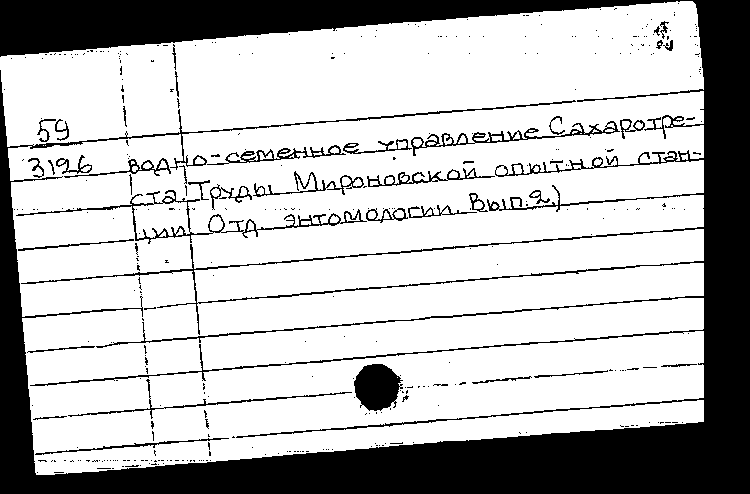 59
3196 водно-семенное управление Сахаротре-
ста Труды Мироновской опытной стан-
ции. Отд. энтомологии. Вып. 2.)